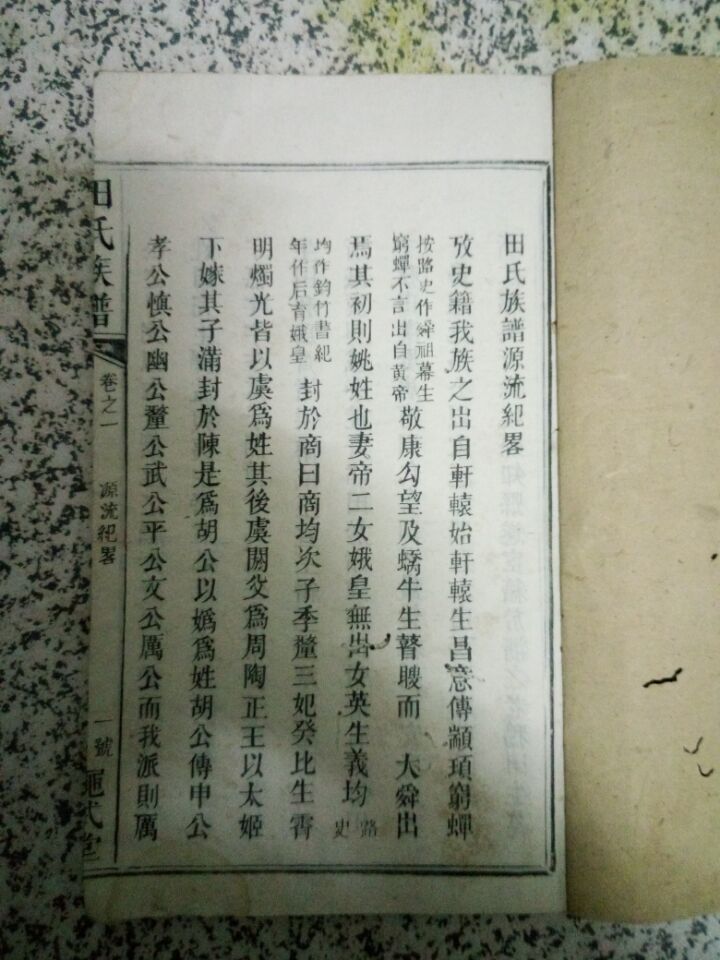 田氏族譜源流紀畧
攷史籍我族之出自軒轅始軒轅生昌意傳顓頊窮蟬
按路史作舜祖幕生
窮蟬不言出自黄帝
敬康勾望及蟜牛生瞽瞍而 大舜出
焉其初則姚姓也妻帝二女娥皇無出女英生義均
路
史
均作鈞竹書紀
年作后育娥皇
封於商曰商均次子季釐三妃癸比生霄
明燭光皆以虞爲姓其後虞閼父爲周陶正王以太姬
下嫁其子滿封於陳是爲胡公以嬀爲姓胡公傳申公
孝公慎公幽公釐公武公平公文公厲公而我派則厲
田氏族譜
卷之一
源流紀畧
一號